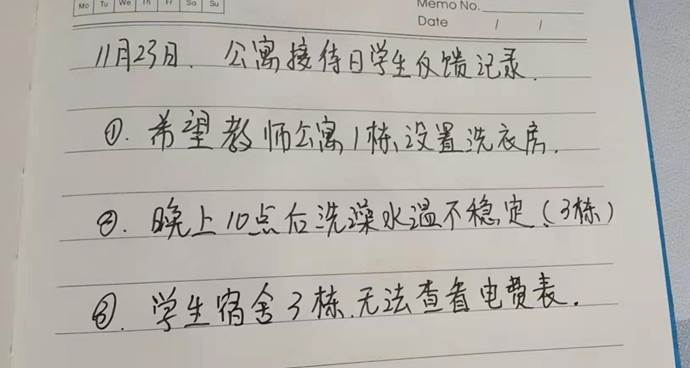 Mo Tu We Th Fr Sa Su
Memo No.
Date / /
11月23日. 公寓接待日学生反馈记录.
①. 希望教师公寓1栋设置洗衣房.
②. 晚上10点后洗澡水温不稳定(3栋)
③. 学生宿舍3栋.无法查看电费表.